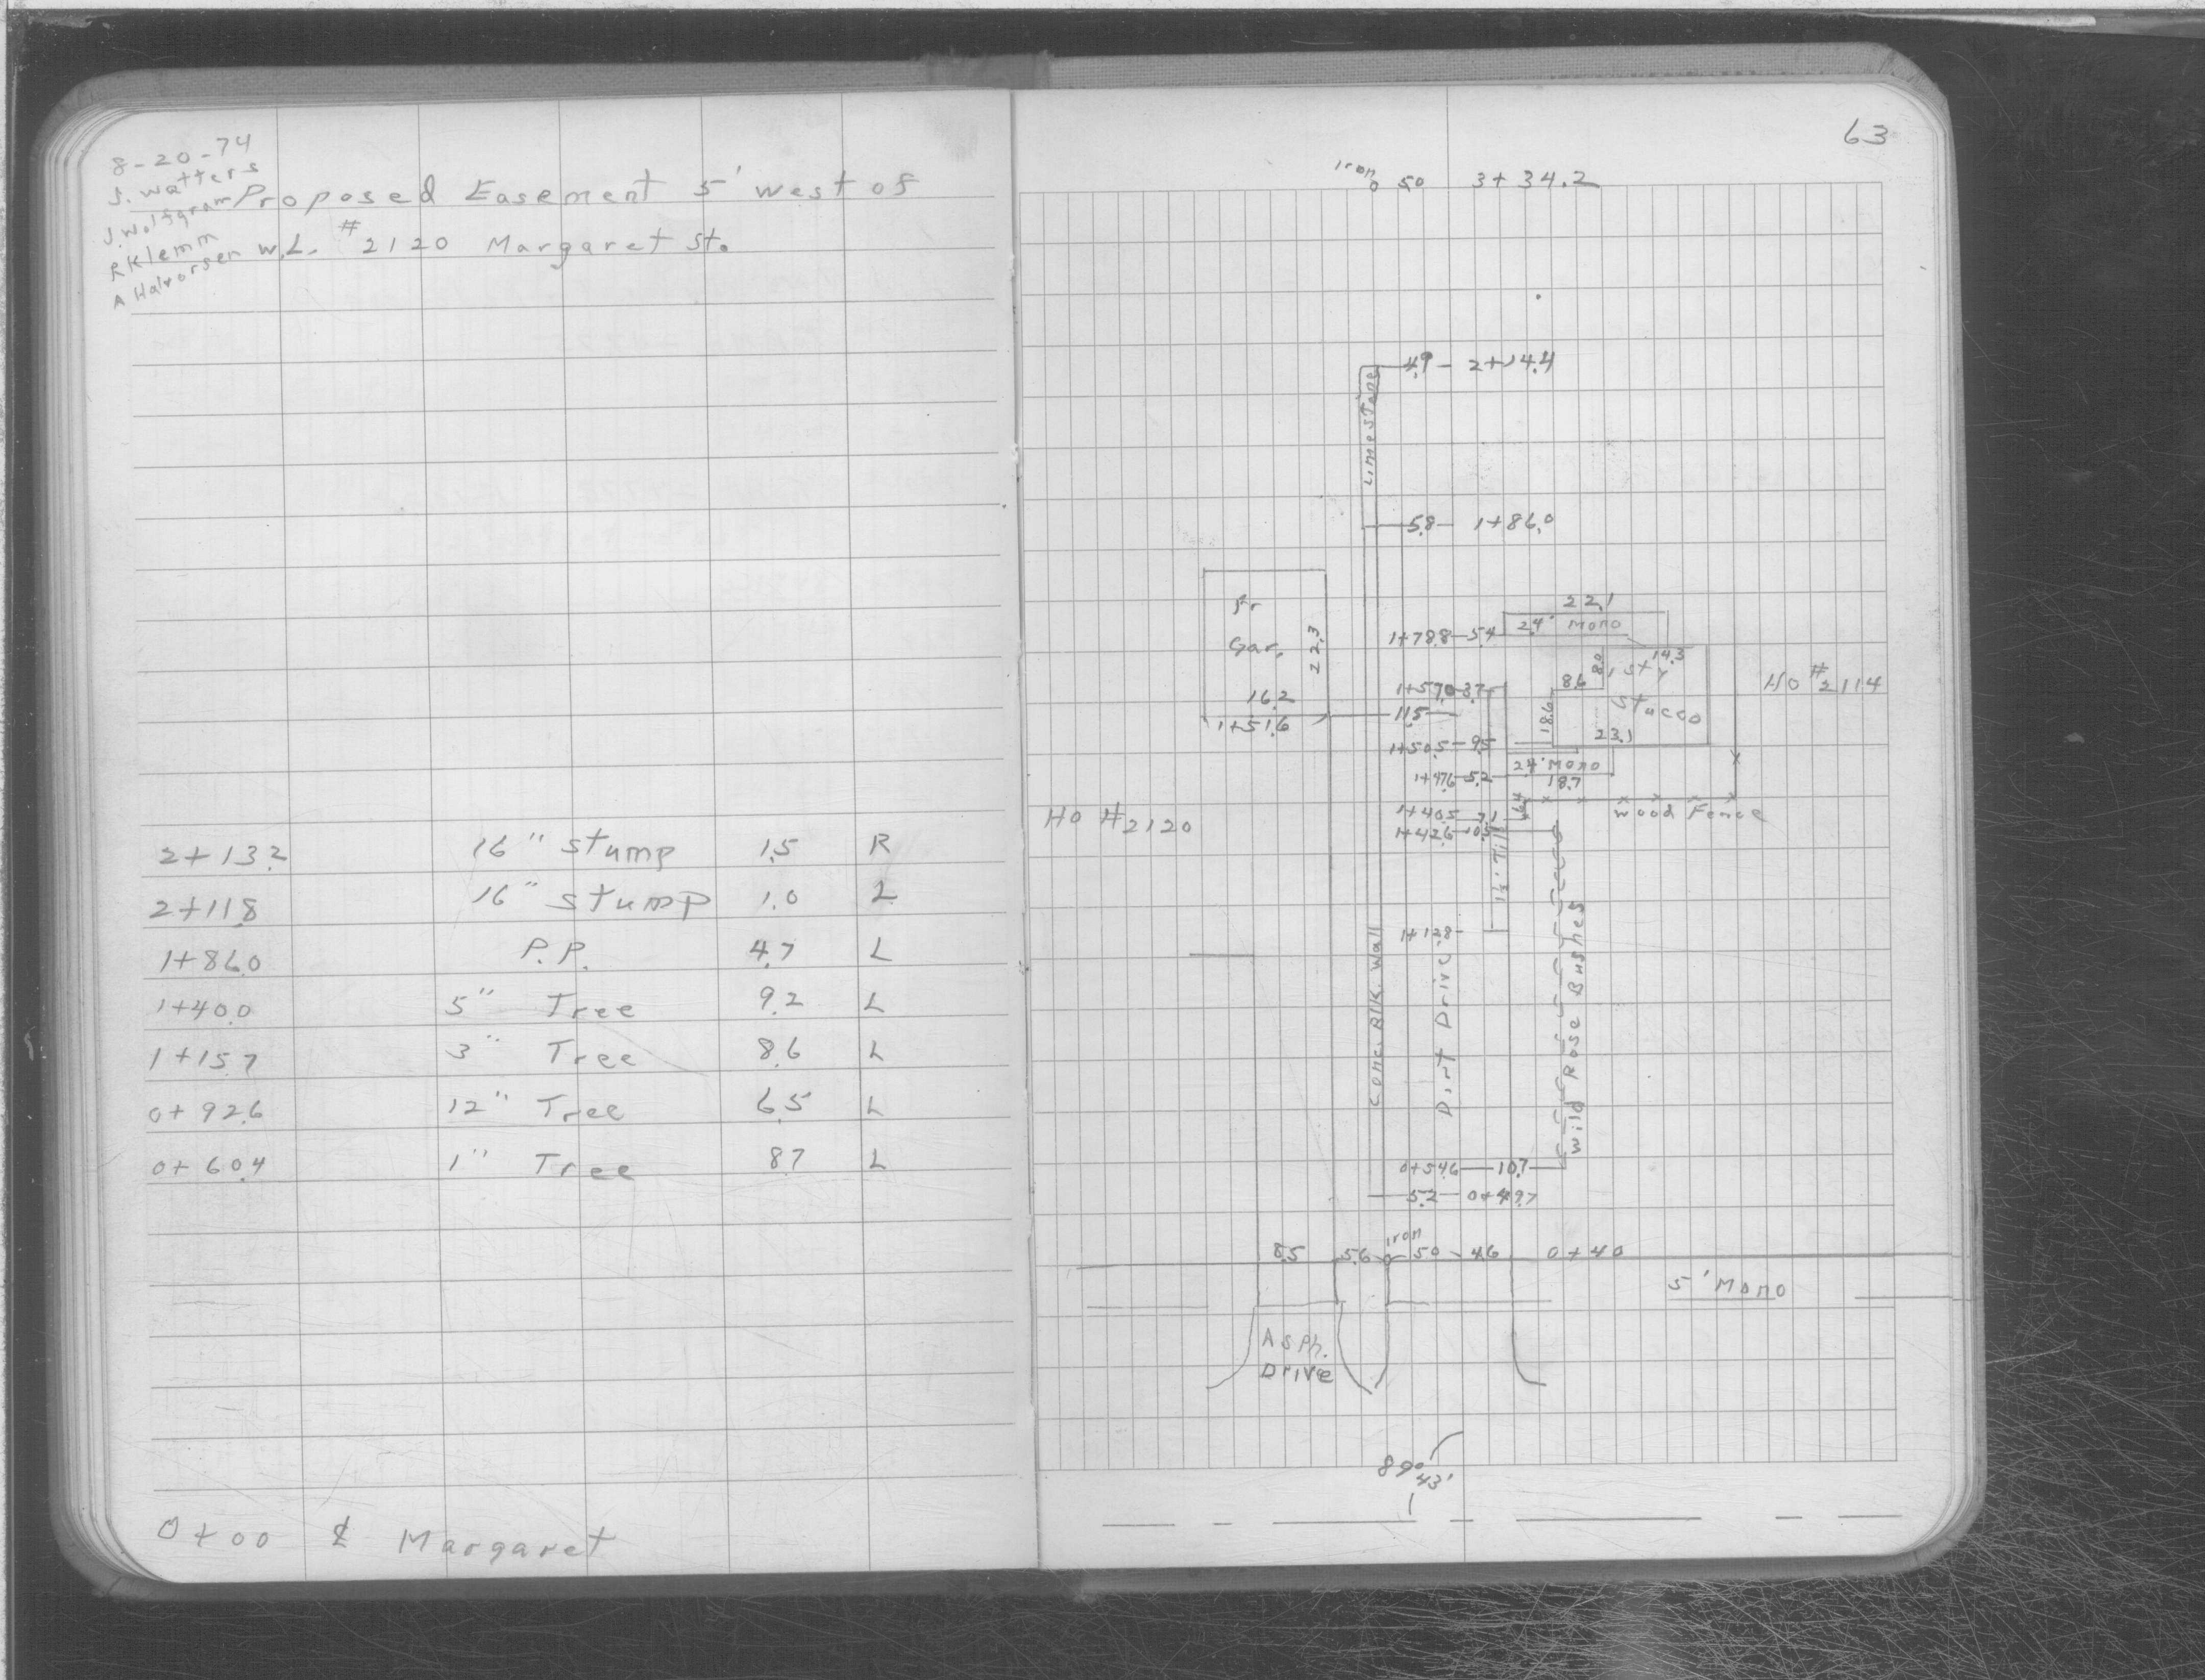 8-20-74
S. Watters
J. Wolfgram
R Klemm
A Halvorsen
Proposed Easement 5' west of
W.L. #2120 Margaret St.
2+13.2 16" stump 1.5 R
2+11.8 16" stump 1.0 L
1+86.0 P.P. 4.7 L
1+40.0 5" Tree 9.2 L
1+15.7 3" Tree 8.6 L
0+92.6 12" Tree 6.5 L
0+60.4 1" Tree 8.7 L
0+00 ℄ Margaret
63
Iron 5.0 3+34.2
4.9 2+14.4
Limestone
5.8 1+86.0
22.1
Fr Gar. 22.3
1+78.8 5.4 2.4' Mono
8.0 14.3
1 Sty Stucco
Ho #2114
16.2
1+57.0 3.7 8.6
1+51.6 11.5
18.6
1+50.5 9.5 23.1
2.4' Mono
1+47.6 5.2 18.7
6.4
Ho #2120
1+40.5 7.1 Wood Fence
1+42.6 10.5
1+12.8
Conc. Blk. Wall
Dirt Drive
Wild Rose Bushes
0+54.6 10.7
5.2 0+49.7
Iron
8.5 5.6 5.0 4.6 0+40
5' Mono
Asph.
Drive
89° 43'